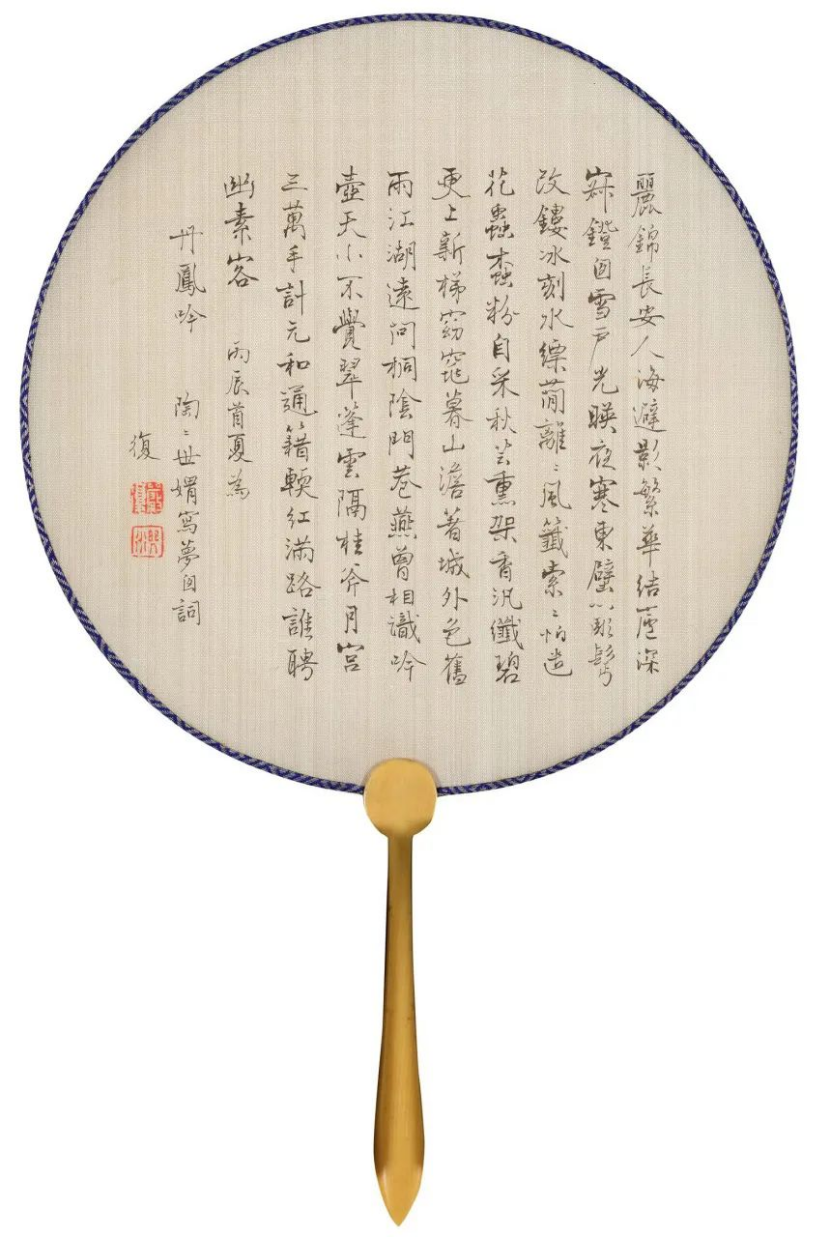 麗錦長安人海避影繁華結廬深
寂鐙囱雪戶光暎夜寒東壁心彫鬢
改鏤冰刻水縹蕳離〻風籤索〻怕遣
花蟲蠹粉自采秋芸熏架香汎纖碧
更上新梯窈窕暮山澹著城外色舊
雨江湖遠問桐陰門巷燕曾相識吟
壺天小不覺翠蓬雲隔桂斧月宮
三萬手計元和通籍輭紅滿路誰聘
幽素客 丙辰首夏為
丹鳳吟 陶〻世媦寫夢囱詞
復